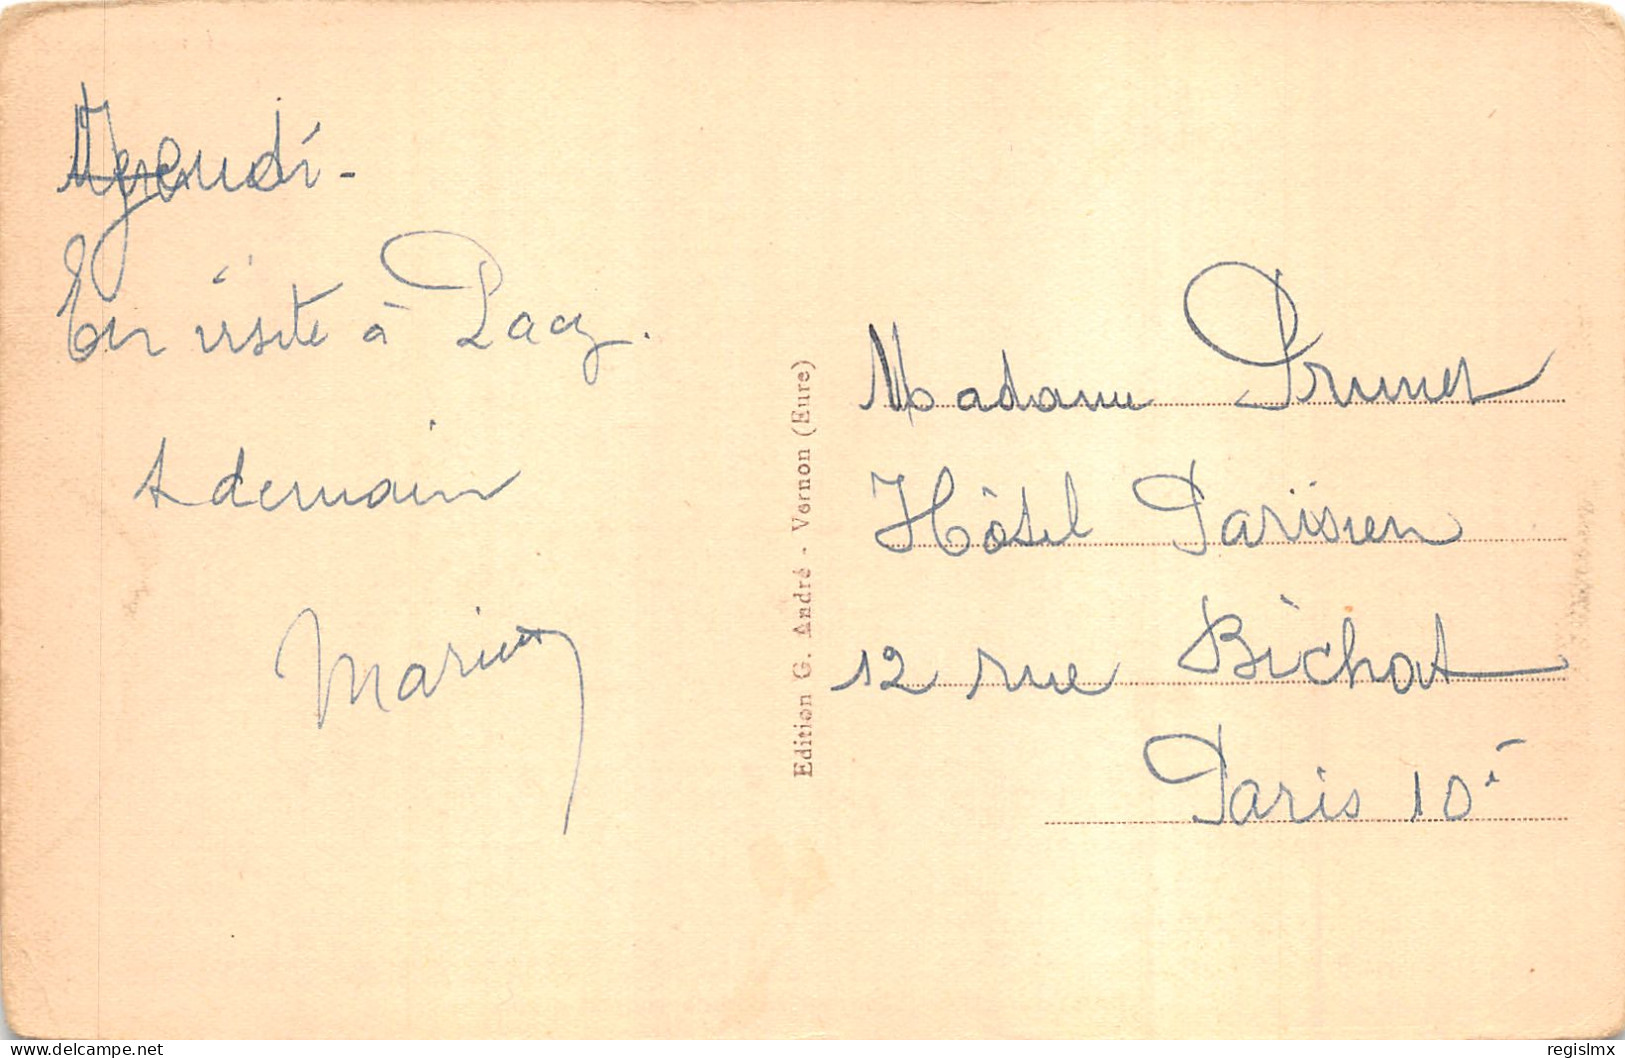 Jeudi-
En visite à Pacy.
A demain
Marius
Edition G. André - Vernon (Eure)
Madame Prunet
Hôtel Parisien
12 rue Bichat
Paris 10è
delcampe.net
regislmx